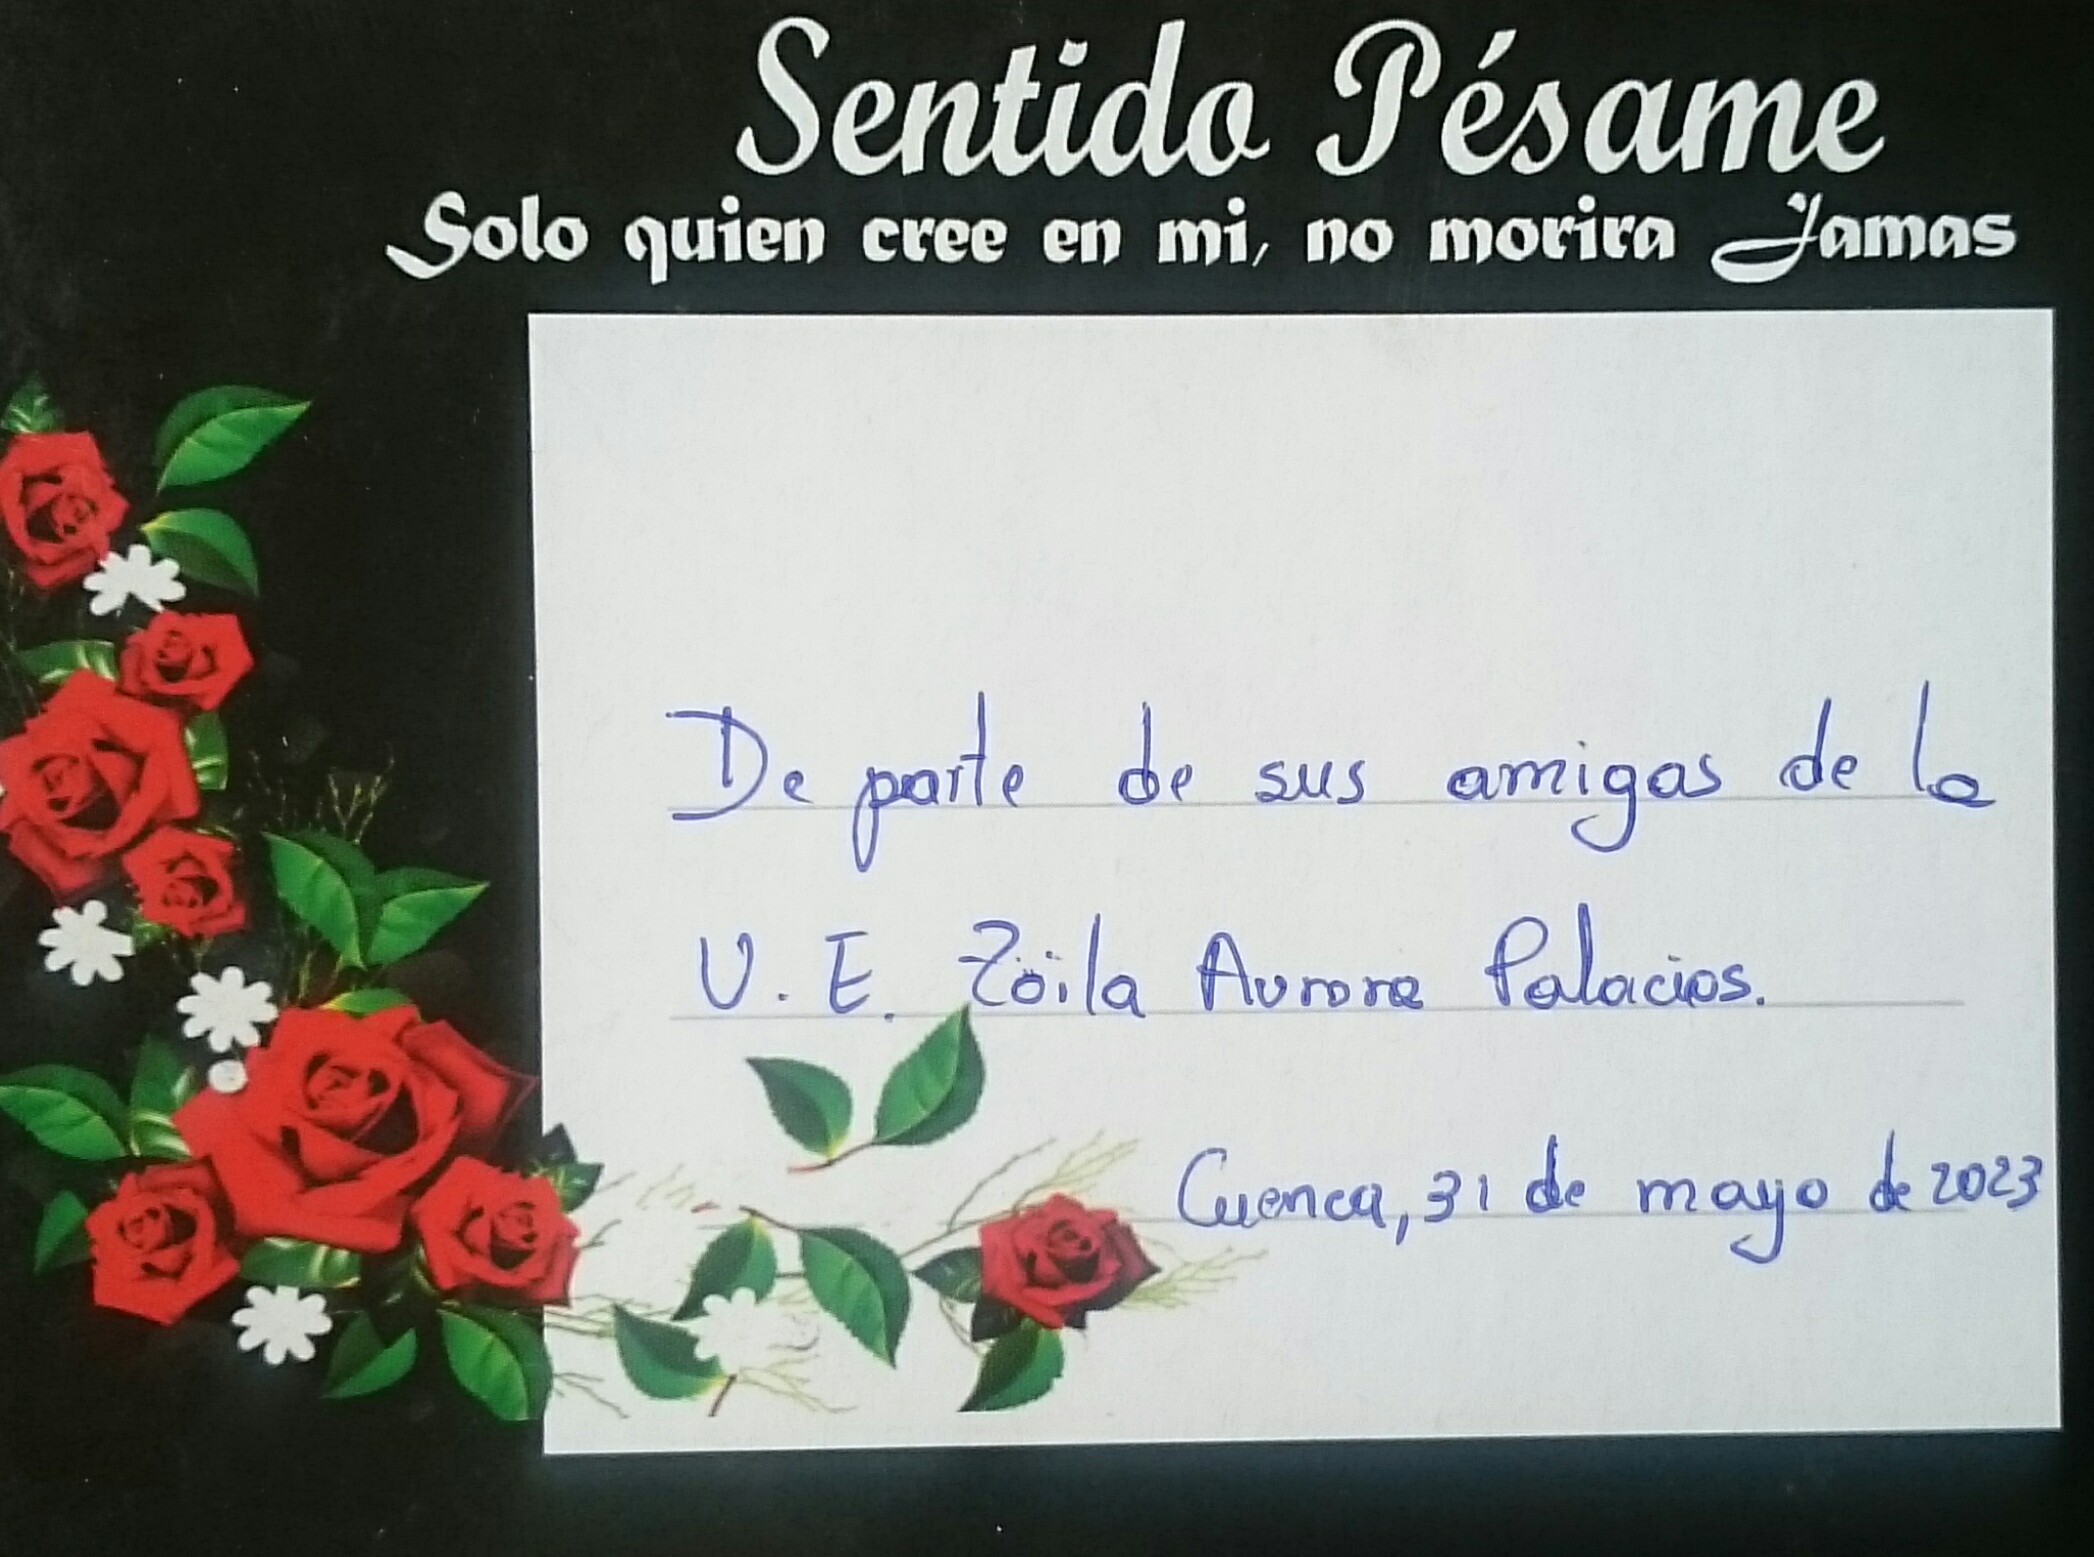 Sentido Pésame
Solo quien cree en mi, no morira Jamas
De parte de sus amigas de la
U. E. Zoila Aurora Palacios.
Cuenca, 31 de mayo de 2023